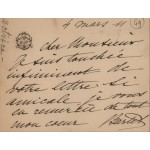 4 mars 11
49
cher Monsieur
Je suis touchée
infiniment de
votre lettre si
amicale je vous
en remercie de tout
mon coeur